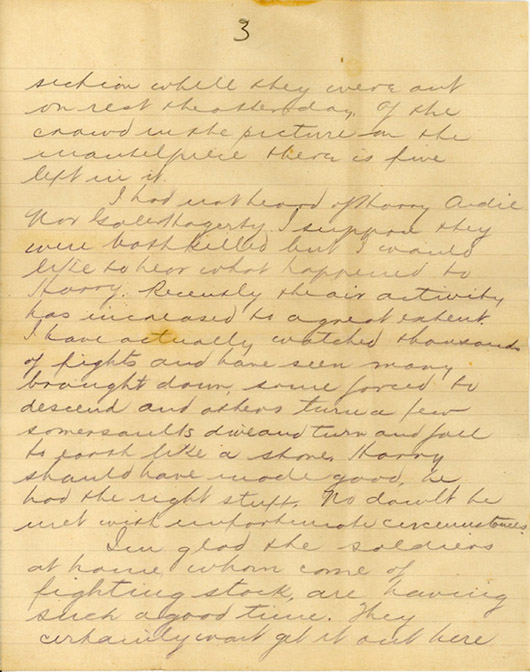 3
section while they were out
on rest the other day. Of the
crowd in the picture on the
mantelpiece there is five
left in it.
I had not heard of Harry Ardie
Nor Hagerty. I suppose they
were both killed but I would
like to hear what happened to
Harry. Recently the air activity
has increased to a great extent.
I have actually watched thousands
of fights and have seen many
brought down, some forced to
descend and others turn a few
somersaults dive and turn and fall
to earth like a stone. Harry
should have made good, he
had the right stuff. No dowlt he
met with unfortunate circumstances.
I'm glad the soldiers
at home whom come of
fighting stock, are having
such a good time. They
certainly wont get it out here